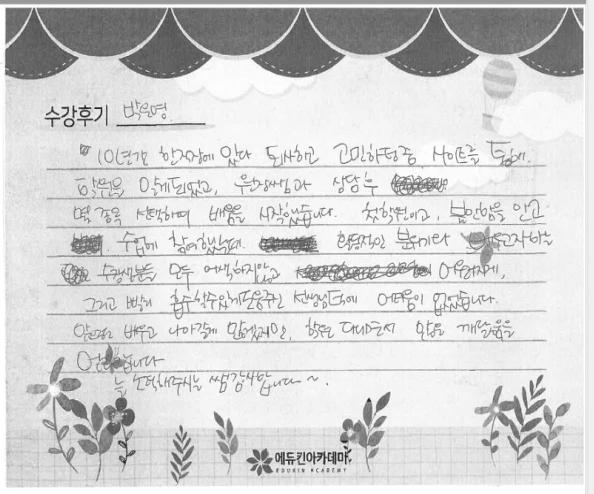 수강후기 박은영
10년간 한직장에 있다 퇴사하고 고민하던중, 사이트를 통해
학원을 알게되었고, 원장쌤과 상담후
몇 종목 선택하여 배움을 시작했습니다. 첫학원이고, 불안함을 안고
수업에 참여했는데 한정적인 분위기와
수강생분들 모두 어색하지않고
그리고 빨리 흡수할수있게 도움주신 선생님덕에 어려움이 없었습니다.
앞으로 배우고 나아갈게 많겠지만, 학원 다니면서 많은 깨달음을
얻었습니다
늘 소탁해주시는 쌤 감사합니다~.
에듀킨아카데미
EDUKIN ACADEMY